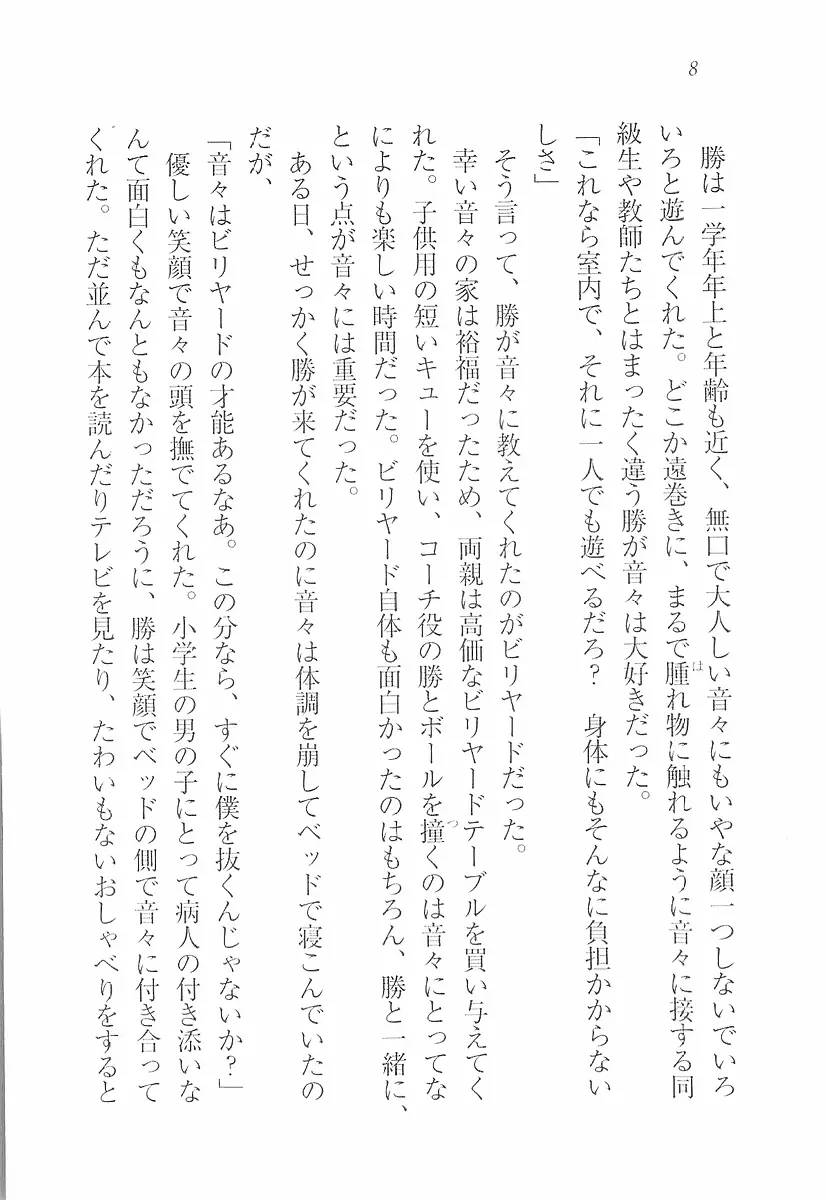 8
勝は一学年年上と年齢も近く、無口で大人しい音々にもいやな顔一つしないでいろ
いろと遊んでくれた。どこか遠巻きに、まるで腫れ物に触れるように音々に接する同
級生や教師たちとはまったく違う勝が音々は大好きだった。
「これなら室内で、それに一人でも遊べるだろ？　身体にもそんなに負担かからない
しさ」
そう言って、勝が音々に教えてくれたのがビリヤードだった。
幸い音々の家は裕福だったため、両親は高価なビリヤードテーブルを買い与えてく
れた。子供用の短いキューを使い、コーチ役の勝とボールを撞くのは音々にとってな
によりも楽しい時間だった。ビリヤード自体も面白かったのはもちろん、勝と一緒に、
という点が音々には重要だった。
ある日、せっかく勝が来てくれたのに音々は体調を崩してベッドで寝こんでいたの
だが、
「音々はビリヤードの才能あるなあ。この分なら、すぐに僕を抜くんじゃないか？」
優しい笑顔で音々の頭を撫でてくれた。小学生の男の子にとって病人の付き添いな
んて面白くもなんともなかっただろうに、勝は笑顔でベッドの側で音々に付き合って
くれた。ただ並んで本を読んだりテレビを見たり、たわいもないおしゃべりをすると